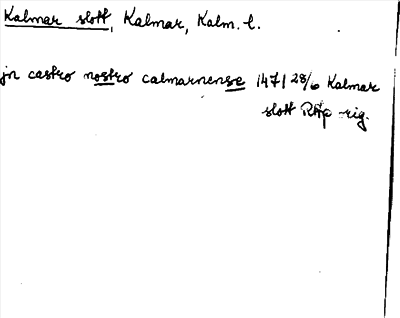 Kalmar slott, Kalmar, Kalm. l.
jn castro nostro calmarnense 1471 28/6 Kalmar
slott RAp rig.